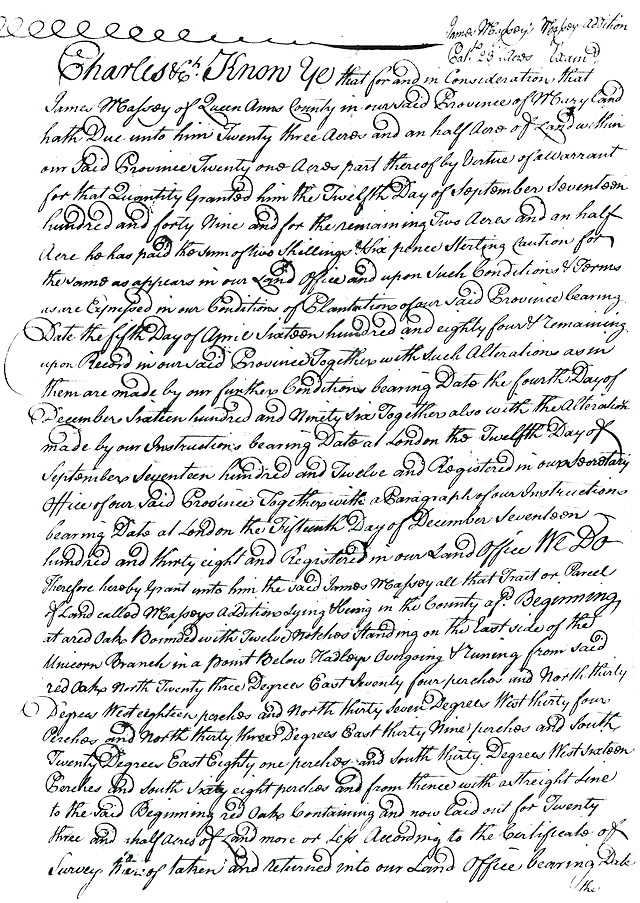 James Massey's Massey Addition
Pat. 23 Acres Exam'd
Charles &c. Know Ye that for and in Consideration that
James Massey of Queen Anns County in our said Province of Mary land
hath Due unto him Twenty three Acres and an half Acre of Land within
our Said Province Twenty one Acres part thereof by Virtue of a Warrant
for that Quantity Granted him the Twelfth Day of September Seventeen
hundred and forty Nine and for the remaining Two Acres and an half
Acre he has paid the sum of two Shillings & Six pence Sterling Caution for
the same as appears in our Land Office and upon Such Conditions & Terms
as are Expressed in our Conditions of Plantation of our Said Province bearing
Date the fifth Day of April Sixteen hundred and eighty four & remaining
upon Record in our said Province Together with Such Alterations as in
them are made by our further Conditions bearing Date the fourth Day of
December Sixteen hundred and Ninety Six Together also with the Alterations
made by our Instructions bearing Date at London the Twelfth Day of
September Seventeen hundred and Twelve and Registered in our Secretary
Office of our Said Province Together with a Paragraph of our Instructions
bearing Date at London the Fifteenth Day of December Seventeen
hundred and thirty eight and Registered in our Land Office We Do
Therefore hereby Grant unto him the said James Massey all that Tract or Parcel
of Land called Masseys Addition Lying & being in the County afd. Beginning
at a red Oak Bounded with Twelve Notches Standing on the East side of the
Unicorn Branch in a point Below Hadleys Overgoing & runing from said
red Oak North Twenty three Degrees East Seventy four perches and North thirty
Degrees West eighteen perches and North thirty Seven Degrees West thirty four
Perches and North thirty three Degrees East thirty Nine perches and South
Twenty Degrees East Eighty one perches and South thirty Degrees West sixteen
Perches and South Sixty eight perches and from thence with a streight Line
to the Said Beginning red Oak Containing and now Laid out for Twenty
three and a half Acres of Land more or Less According to the Certificate of
Survey thereof taken and returned into our Land Office bearing Date
the